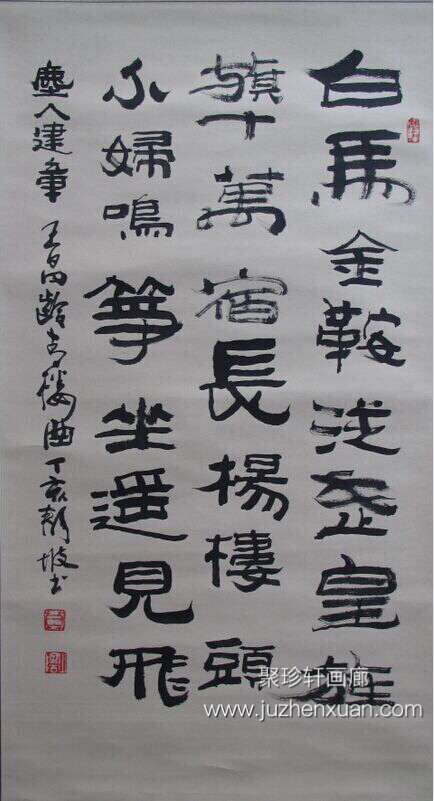 白馬金鞍從武皇旌
旗十萬宿長楊樓頭
小婦鳴箏坐遥見飛
塵入建章 王昌齡青樓曲 丁亥 书
聚珍轩画廊
www.juzhenxuan.com